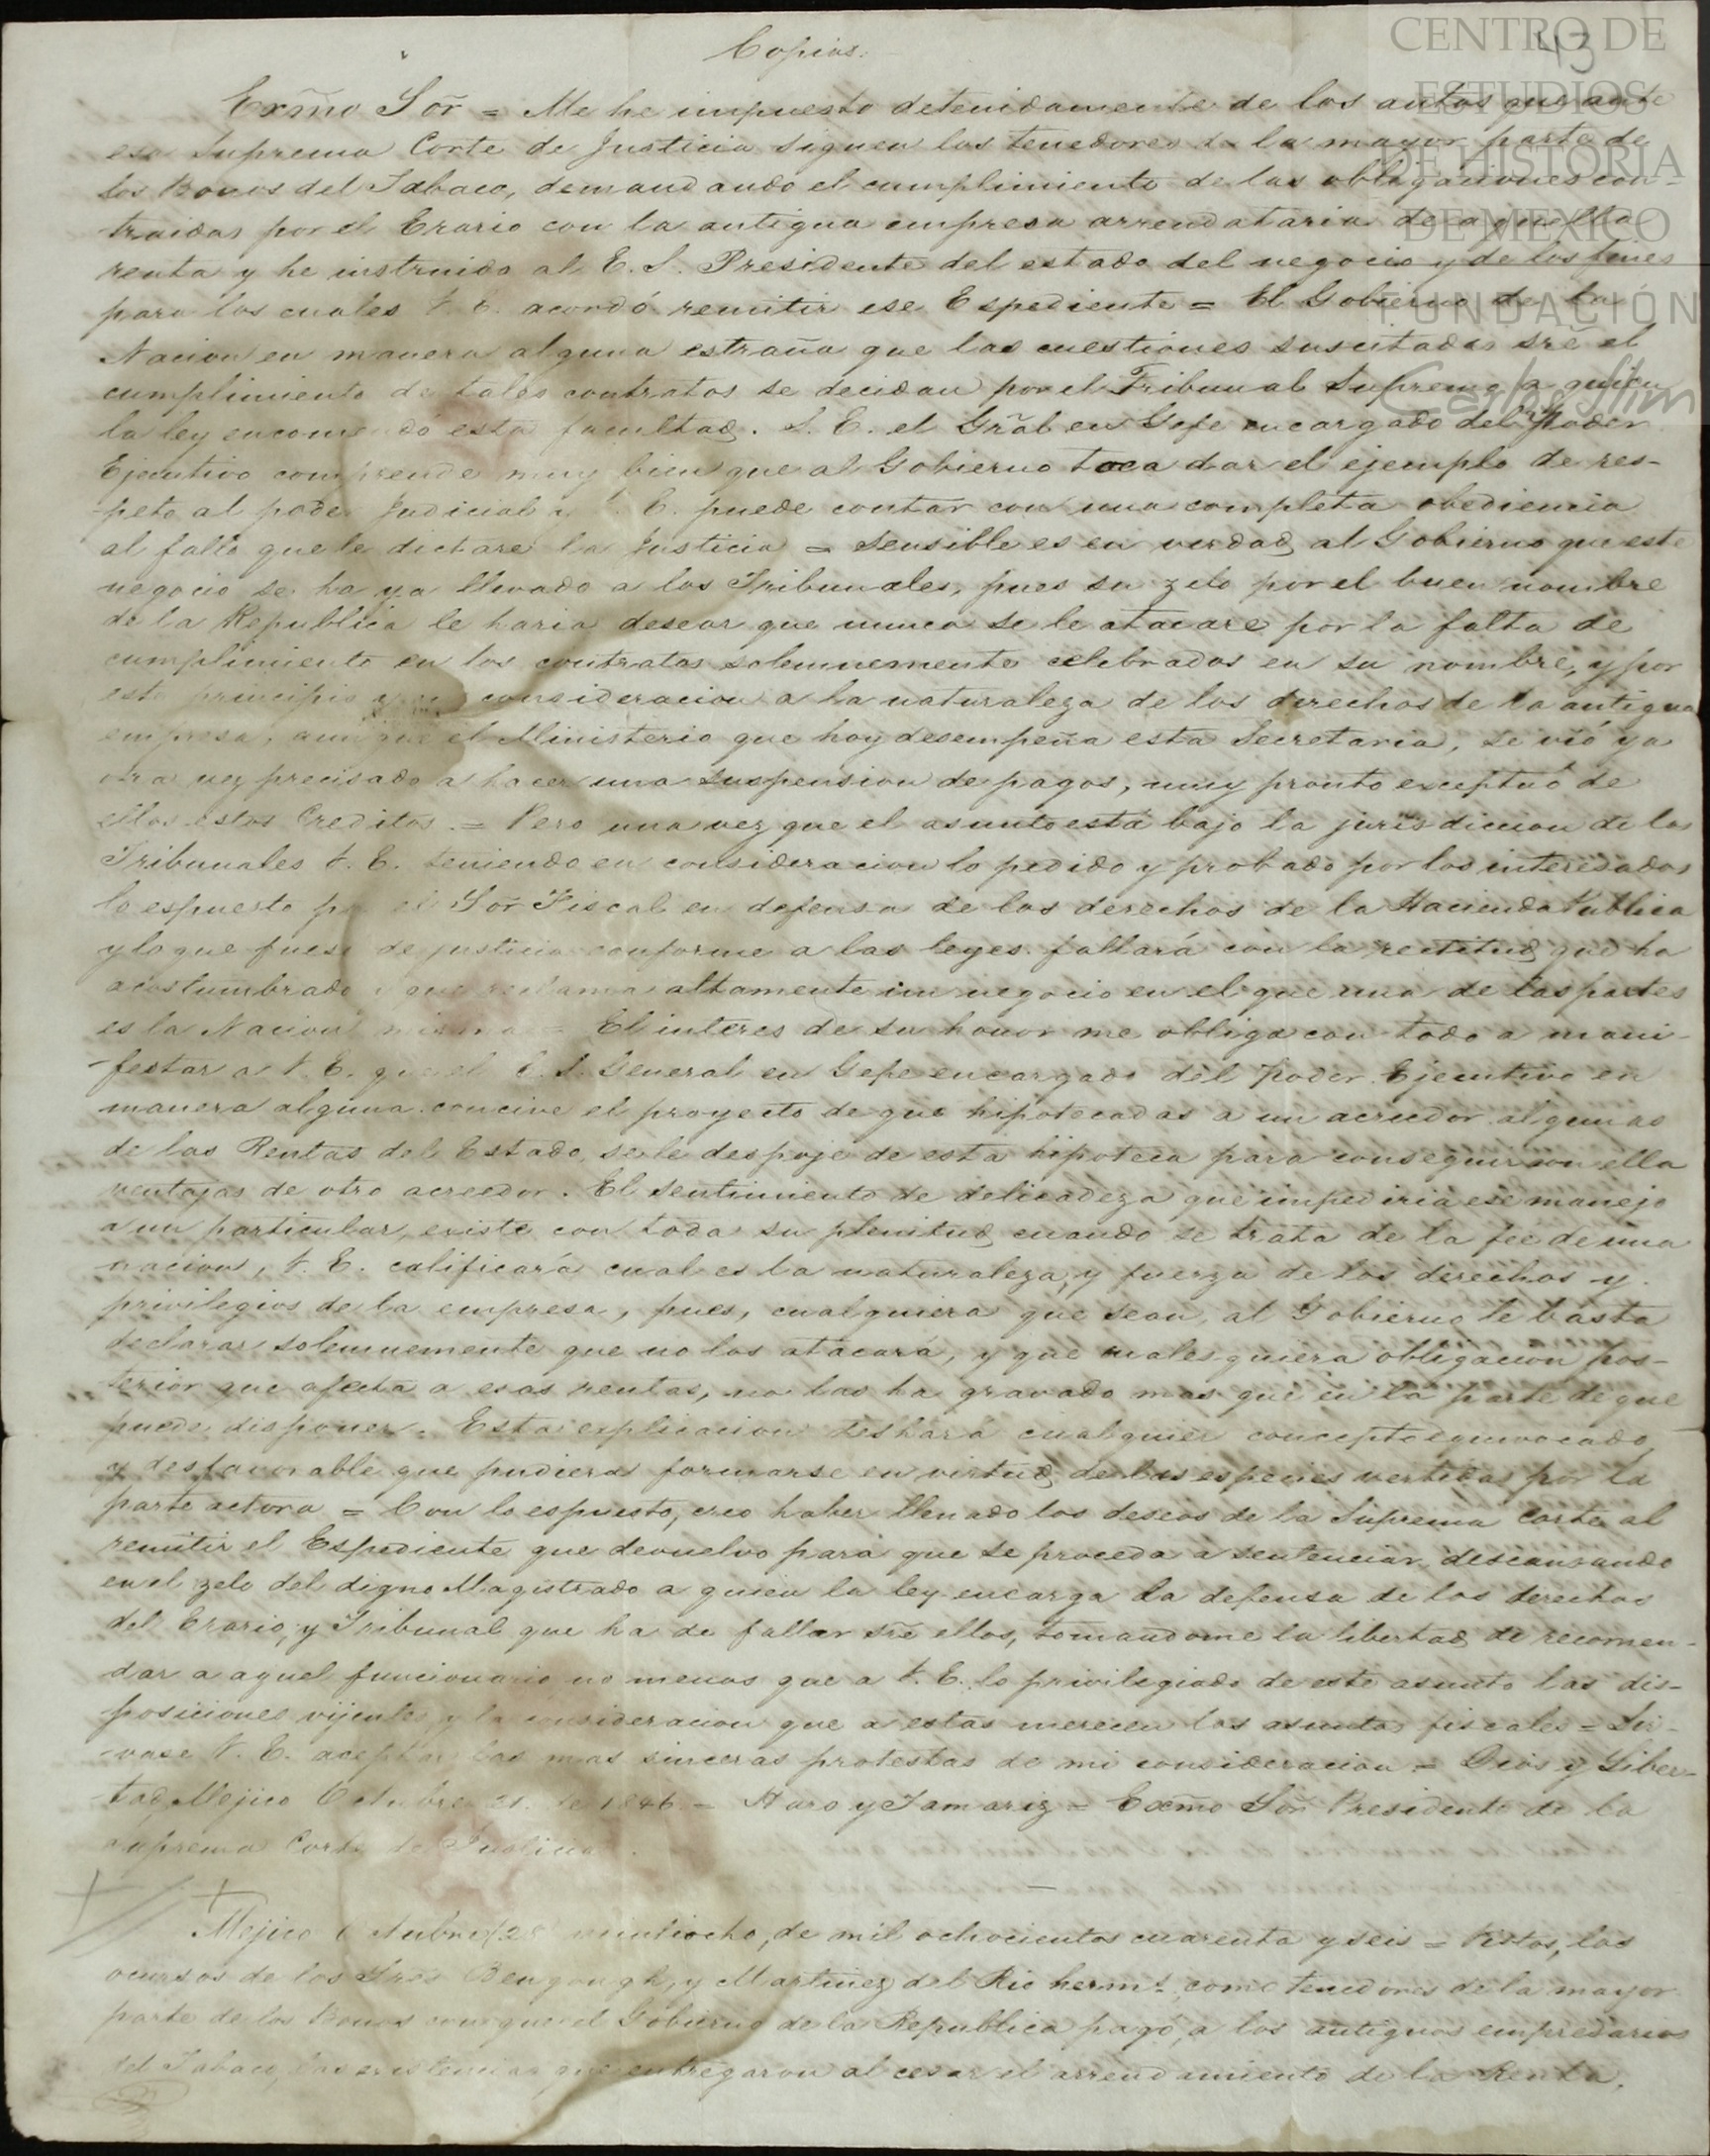 CENTRO DE
ESTUDIOS
DE HISTORIA
DE MEXICO
FUNDACIÓN
Carlos Slim
43
Copias.
Exm̃o Sor̃ = Me he impuesto detenidamente de los autos que ante
esa Suprema Corte de Justicia siguen los tenedores de la mayor parte de
los Bonos del Tabaco, demandando el cumplimiento de las obligaciones con-
traidas por el Erario con la antigua empresa arrendataria de aquella
renta y he instruido al E. S. Presidente del estado del negocio y de los fines
para los cuales V. E. acordó remitir ese Espediente = El Gobierno de la
Nacion en manera alguna estraña que las cuestiones suscitadas sr̃e el
cumplimiento de tales contratos se decidan por el Tribunal Supremo a quien
la ley encomendó esta facultad. S. E. el Gral̃ en Gefe encargado del Poder
Ejecutivo comprende muy bien que al Gobierno toca dar el ejemplo de res-
peto al poder Judicial y V. E. puede contar con una completa obediencia
al fallo que le dictare la Justicia = Sensible es en verdad al Gobierno que este
negocio se haya llevado a los Tribunales, pues su zelo por el buen nombre
de la Republica le haria desear que nunca se le atacare por la falta de
cumplimiento en los contratos solemnemente celebrados en su nombre, y por
este principio y en consideracion a la naturaleza de los derechos de la antigua
empresa, aunque el Ministerio que hoy desempeña esta Secretaria, se vió ya
otra vez precisado a hacer una suspension de pagos, muy pronto exceptuó de
ellos estos Creditos. = Pero una vez que el asunto está bajo la jurisdiccion de los
Tribunales V. E. teniendo en consideracion lo pedido y probado por los interesados
lo espuesto por el Sor̃ Fiscal en defensa de los derechos de la Hacienda Publica
y lo que fuese de justicia conforme a las leyes fallará con la rectitud que ha
acostumbrado y que reclama altamente un negocio en el que una de las partes
es la Nacion misma = El interes de su honor me obliga con todo a mani-
-festar a V. E. que el E. S. General en Gefe encargado del Poder Ejecutivo en
manera alguna concive el proyecto de que hipotecadas a un acreedor algunas
de las Rentas del Estado, se le despoje de esta hipoteca para conseguir con ella
ventajas de otro acreedor. El sentimiento de delicadeza que impediria ese manejo
a un particular, existe con toda su plenitud cuando se trata de la fee de una
nacion, V. E. calificará cual es la naturaleza, y fuerza de los derechos y
privilegios de la empresa, pues, cualquiera que sean, al Gobierno le basta
declarar solemnemente que no los atacará, y que cualesquiera obligacion pos-
terior que afecta a esas rentas, no las ha gravado mas que en la parte de que
puede disponer. Esta explicacion deshará cualquier concepto equivocado
y desfavorable que pudiera formarse en virtud de las especies vertidas por la
parte actora = Con lo espuesto, creo haber llenado los deseos de la Suprema Corte al
remitir el Espediente que devuelvo para que se proceda a sentenciar, descansando
en el zelo del digno Magistrado a quien la ley encarga la defensa de los derechos
del Erario, y Tribunal que ha de fallar sr̃e ellos, tomandome la libertad de recomen-
dar a aquel funcionario no menos que a V. E. lo privilegiado de este asunto las dis-
posiciones vijentes y la consideracion que a estas merecen los asuntos fiscales = Sir-
-vase V. E. aceptar las mas sinceras protestas de mi consideracion = Dios y Liber-
tad, Mejico Octubre 21. de 1846. = Haro y Tamariz = Exm̃o Sor̃ Presidente de la
Suprema Corte de Justicia.
Mejico Octubre 28 veintiocho, de mil ochocientos cuarenta y seis = Vistos, los
ocursos de los Sres Bengough, y Martinez del Rio hermˢ. como tenedores de la mayor
parte de los Bonos con que el Gobierno de la Republica pagó, a los antiguos empresarios
del Tabaco, las existencias que entregaron al cesar el arrendamiento de la Renta.